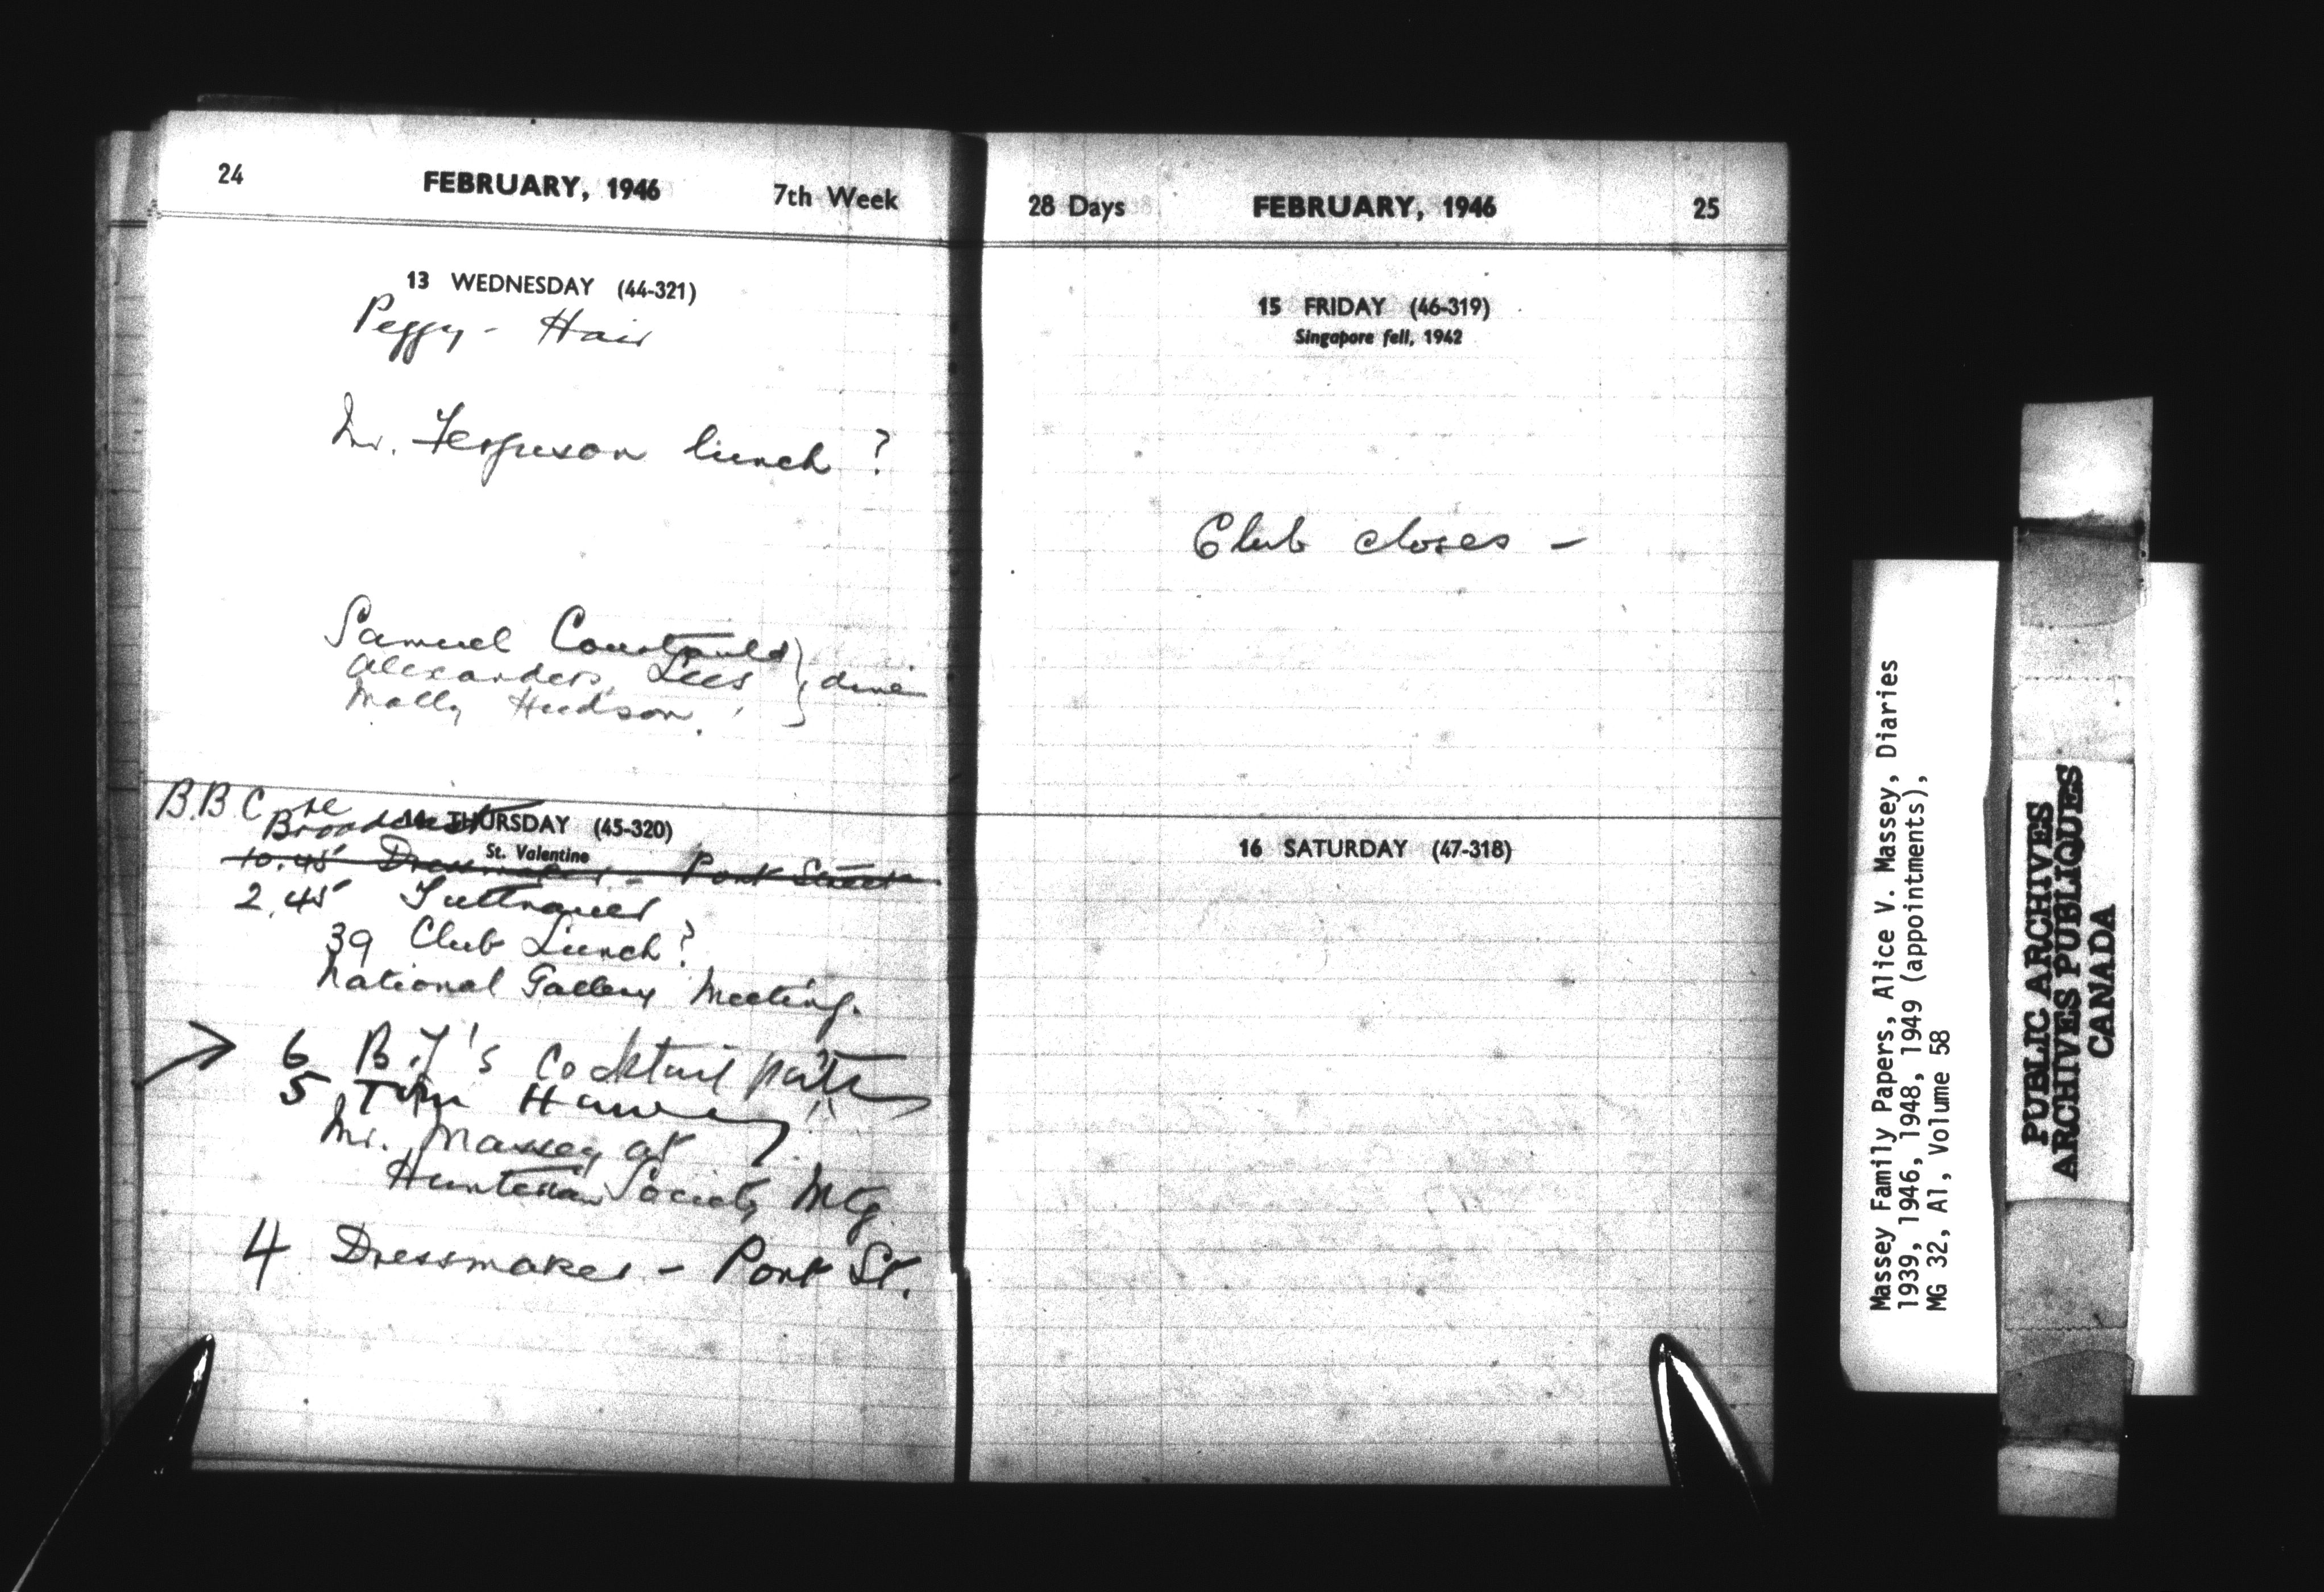 24 FEBRUARY, 1946 7th Week
13 WEDNESDAY (44-321)
Peggy - Hair
Mr. Ferguson lunch ?
Samuel Courtauld
Alexanders, Lees } dine
Molly Hudson.
B.B.C. re
Broadcast
14 THURSDAY (45-320)
St. Valentine
10.45 Dressmaker - Pont Street
2.45
39 Club Lunch?
National Gallery Meeting.
6 B.J's Cocktail party
5 Tom
Mr. Massey at
Hunterian Society Mtg
4 Dressmaker - Pont St.
28 Days FEBRUARY, 1946 25
15 FRIDAY (46-319)
Singapore fell, 1942
Club closes -
16 SATURDAY (47-318)
Massey Family Papers, Alice V. Massey, Diaries
1939, 1946, 1948, 1949 (appointments),
MG 32, A1, Volume 58
PUBLIC ARCHIVES
ARCHIVES PUBLIQUES
CANADA